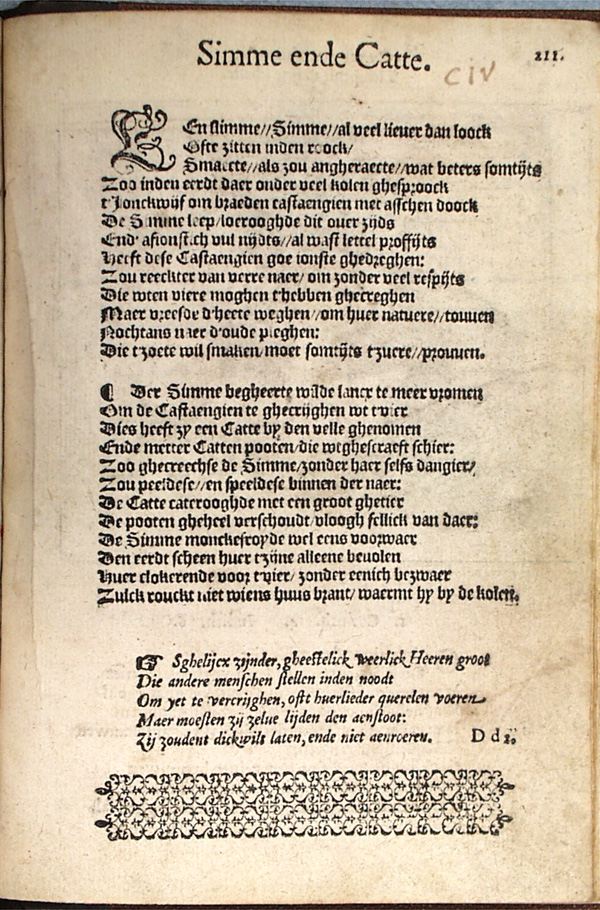 Simme ende Catte.
211.
CIV
Een slimme//Simme//al veel liever dan loock
Ofte zitten inden roock/
Smaecte//als zou angheraecte//wat beters somtijts
Zoo inden eerdt daer onder veel kolen ghesproock
t'Jonckwijf om braeden castaengien met asschen doock
De Simme leep/loerooghde dit over zijds
End' afionstich vul nijdts//al wast lettel proffijts
Heeft dese Castaengien goe ionste ghedreghen:
Zou reeckter van verre naer/ om zonder veel respijts
Die wten viere moghen t'hebben ghecreghen
Maer vreesde d'heete weghen//om huer natuere//touwen
Nochtans naer d'oude pleghen:
Die t'zoete wil smaken/moet somtijts t'zuere//prouuen.
¶ Der Simme begheerte wilde lancx te meer vromen
Om de Castaengien te ghecrijghen wt t'vier
Dies heeft zy een Catte by den velle ghenomen
Ende metter Catten pooten/die weghescraeft schier:
Zoo ghecreechse de Simme/zonder haer selfs dangier/
Zou peeldese//en speeldese binnen der naer:
De Catte caterooghde met een groot ghetier
De pooten gheheel verschoudt/vloogh fellick van daer:
De Simme monckefroyde wel eens voorwaer
Den eerdt scheen huer t'zijne alleene bevolen
Huer clokerende voor t'vier/ zonder eenich bezwaer
Zulck rouckt niet wiens huus brant/ waermt hy by de kolen.
Sghelijcx zijnder, gheestelick, weerlick, Heeren groot
Die andere menschen stellen inden noodt
Om yet te vercrijghen, oft huerlieder querelen voeren
Maer moesten zij zelue lijden den aenstoot:
Zij zoudent dickwils laten, ende niet aenroeren.
D d 2.